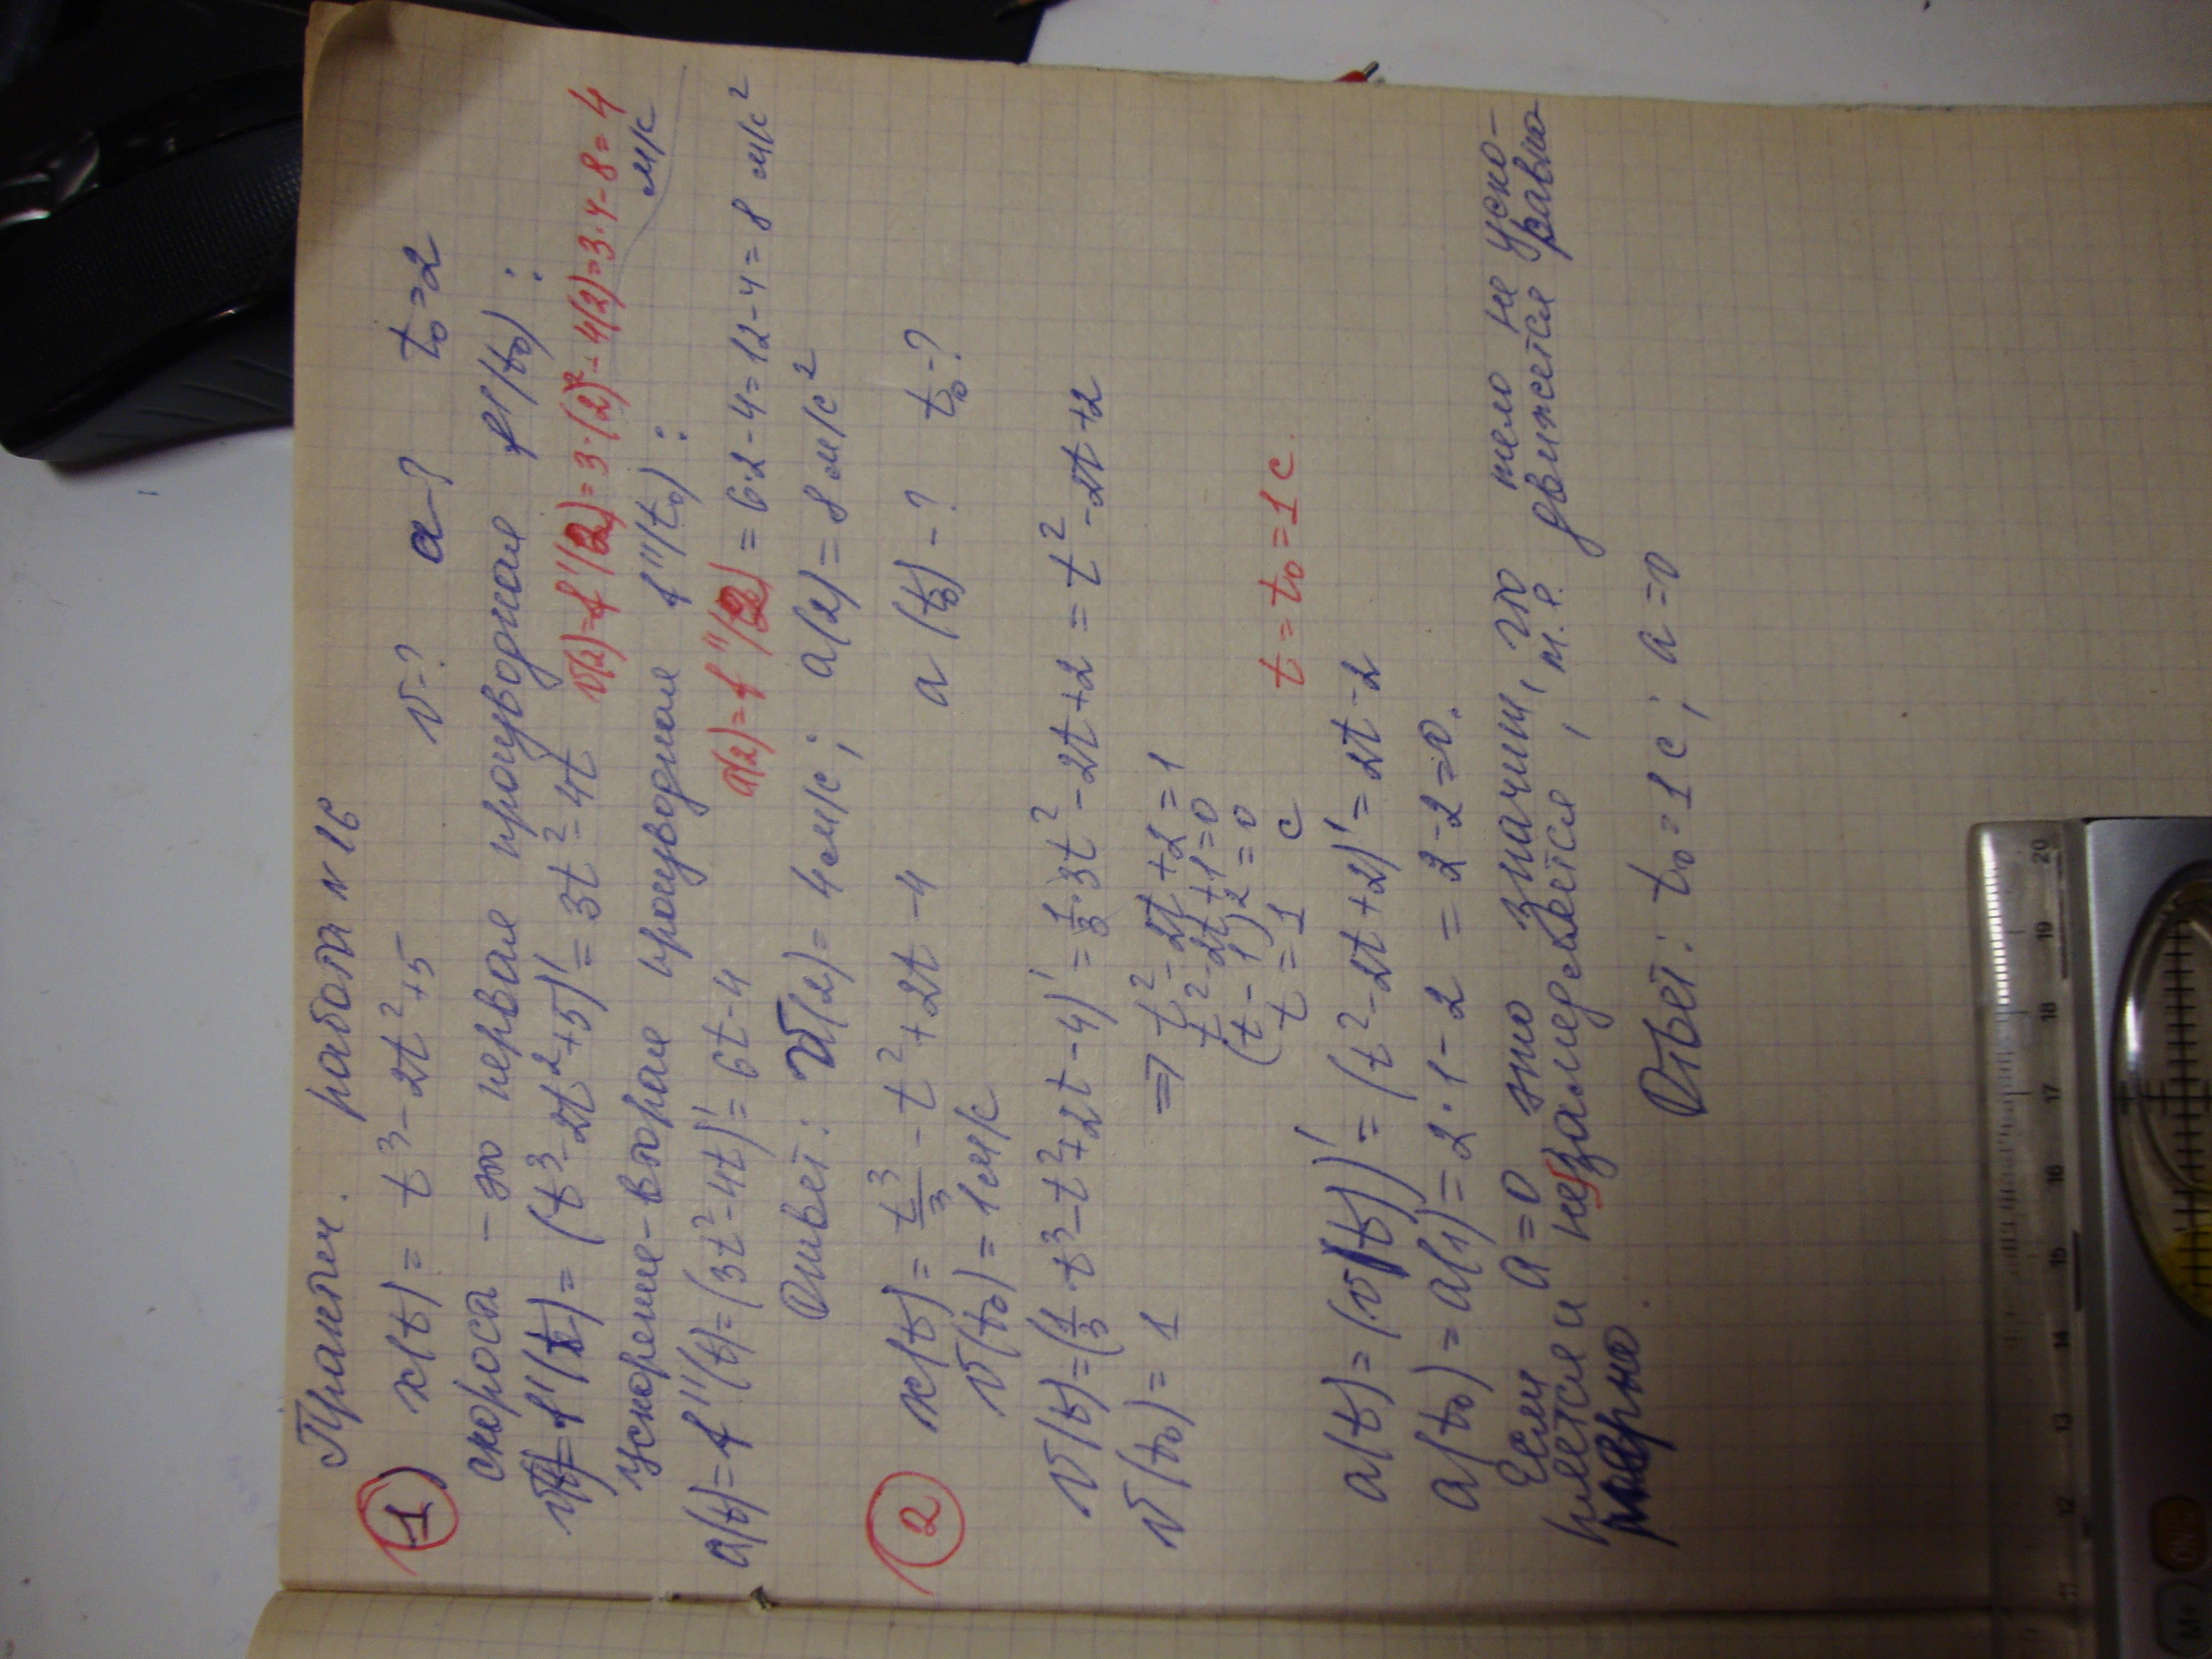 Практич. работа №16
1 x(t) = t³ - 2t² + 5 v-? a-? t₀=2
скорость - это первая производная f'(t₀):
v(t)=f'(t) = (t³-2t²+5)' = 3t²-4t v(2)=f'(2)=3·(2)²-4(2)=3·4-8=4 м/с
ускорение-вторая производная f''(t₀):
a(t)=f''(t)=(3t²-4t)'=6t-4 a(2)=f''(2)=6·2-4=12-4=8 м/с²
Ответ: v(2)=4м/с; a(2)=8м/с²
2 x(t)= t³/3 - t² + 2t - 4 a(t₀)-? t₀-?
v(t₀)=1м/с
v(t)=(1/3·t³-t²+2t-4)'=1/3·3t²-2t+2=t²-2t+2
v(t₀)=1 => t²-2t+2=1
t²-2t+1=0
(t-1)²=0
t=1 с t=t₀=1с.
a(t)=(v(t))'=(t²-2t+2)'=2t-2
a(t₀)=a(1)=2·1-2=2-2=0.
Если a=0 это значит, что тело не уско-
ряется и незамедляется, т.е. движется равно-
мерно
Ответ: t₀=1с; a=0
20
19
18
17
16
15
14
13
12
11
ON/C
M+